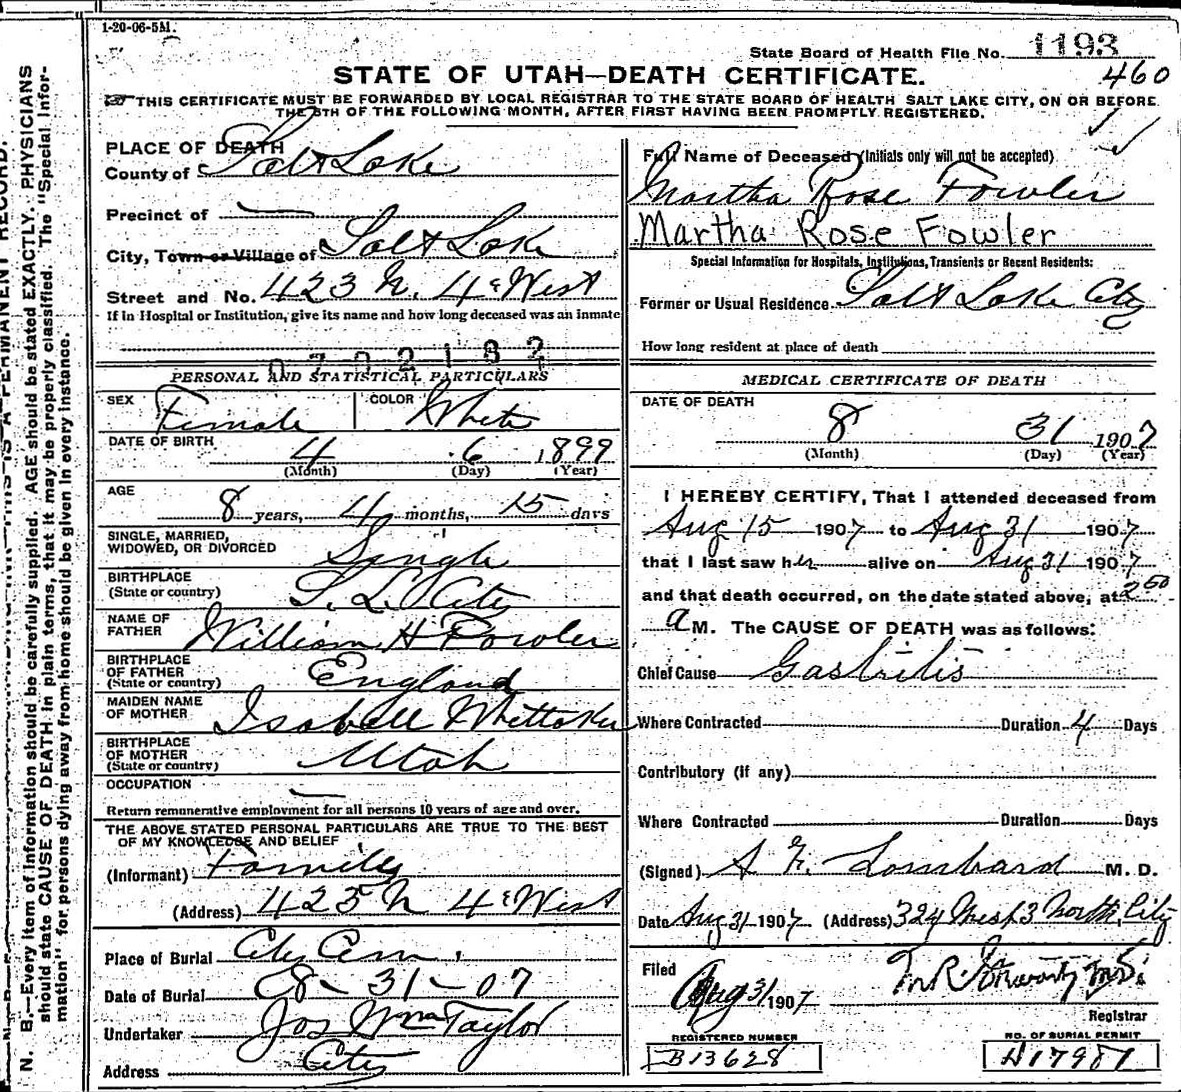 1-20-06-5M.
State Board of Health File No. 1193
460
STATE OF UTAH—DEATH CERTIFICATE.
THIS CERTIFICATE MUST BE FORWARDED BY LOCAL REGISTRAR TO THE STATE BOARD OF HEALTH SALT LAKE CITY, ON OR BEFORE
THE 5TH OF THE FOLLOWING MONTH, AFTER FIRST HAVING BEEN PROMPTLY REGISTERED.
PLACE OF DEATH
County of Salt Lake
Precinct of —
City, Town or Village of Salt Lake
Street and No. 423 N. 4 West
If in Hospital or Institution, give its name and how long deceased was an inmate
0702182
PERSONAL AND STATISTICAL PARTICULARS
SEX Female COLOR White
DATE OF BIRTH 4 6 1899
(Month) (Day) (Year)
AGE
8 years, 4 months, 15 days
SINGLE, MARRIED,
WIDOWED, OR DIVORCED Single
BIRTHPLACE
(State or country) S. L. City
NAME OF
FATHER William H Fowler
BIRTHPLACE
OF FATHER
(State or country) England
MAIDEN NAME
OF MOTHER Isabell Whittaker
BIRTHPLACE
OF MOTHER
(State or country) Utah
OCCUPATION —
Return remunerative employment for all persons 10 years of age and over.
THE ABOVE STATED PERSONAL PARTICULARS ARE TRUE TO THE BEST
OF MY KNOWLEDGE AND BELIEF
(Informant) Family
(Address) 425 N 4 West
Place of Burial City Cem.
Date of Burial 8-31-07
Undertaker Jos Wm Taylor
Address City
Full Name of Deceased (Initials only will not be accepted)
Martha Rose Fowler
Martha Rose Fowler
Special Information for Hospitals, Institutions, Transients or Recent Residents:
Former or Usual Residence Salt Lake City
How long resident at place of death
MEDICAL CERTIFICATE OF DEATH
DATE OF DEATH
8 31 1907
(Month) (Day) (Year)
I HEREBY CERTIFY, That I attended deceased from
Aug 15 1907 to Aug 31 1907
that I last saw her alive on Aug 31 1907
and that death occurred, on the date stated above, at 2 50
a M. The CAUSE OF DEATH was as follows:
Chief Cause Gastritis
Where Contracted Duration 4 Days
Contributory (if any)
Where Contracted Duration Days
(Signed) A. F. Lombard M. D.
Date Aug 31 1907 (Address) 324 West 3 North, City
Filed
Aug 31 1907
Registrar
REGISTERED NUMBER
B13628
NO. OF BURIAL PERMIT
A17987
N. B.—Every item of information should be carefully supplied. AGE should be stated EXACTLY. PHYSICIANS
should state CAUSE OF DEATH in plain terms, that it may be properly classified. The "Special Infor-
mation" for persons dying away from home should be given in every instance.